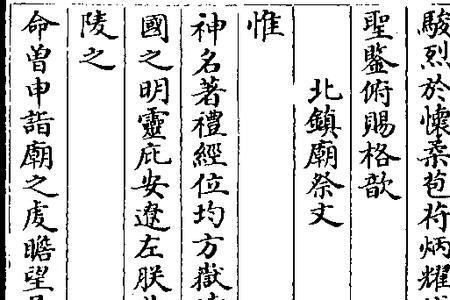 駿烈於懷柔苞符炳耀
聖鑒俯賜格歆
北鎮廟祭文
惟
神名著禮經位均方嶽
國之明靈庇安遼左朕
陵之
命曽申詣廟之虔瞻望